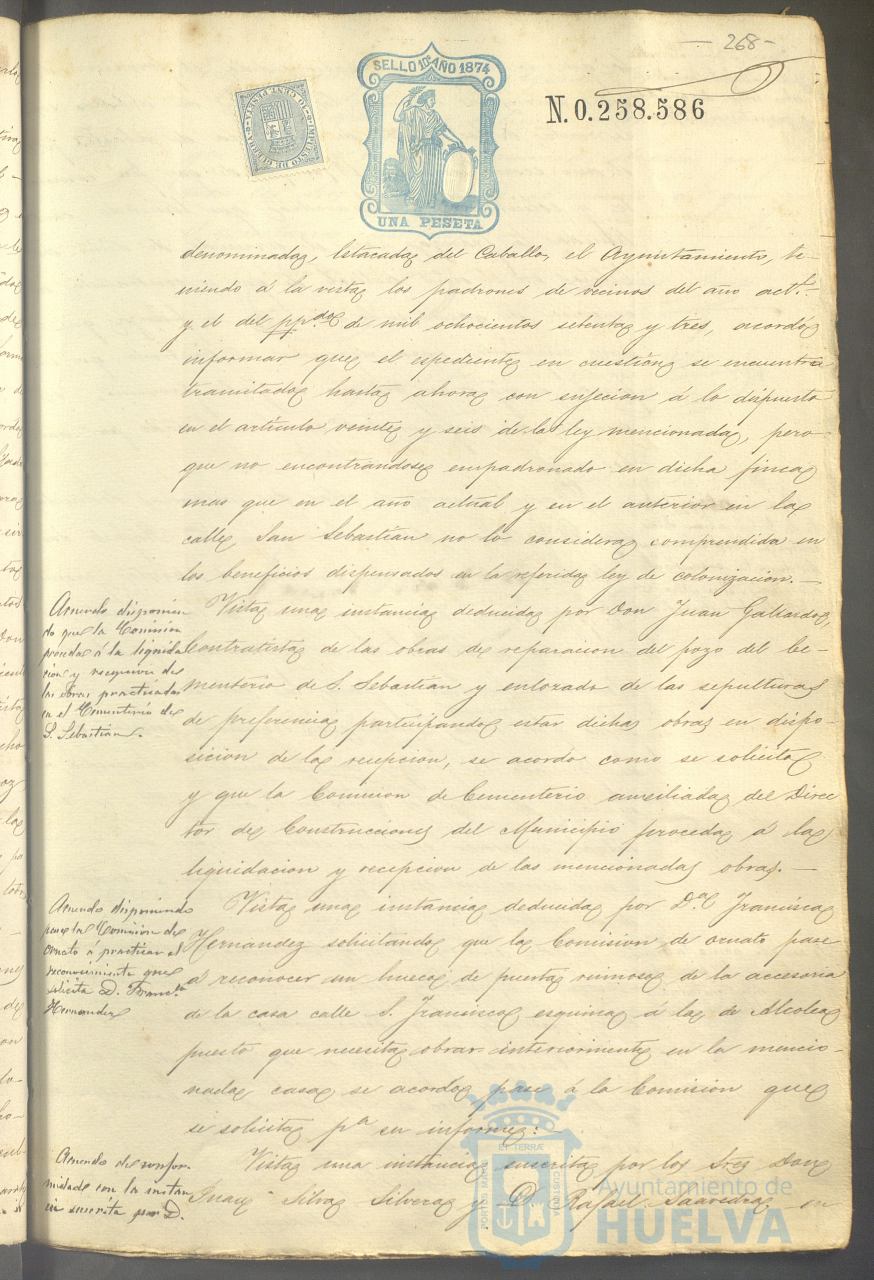 - 268 -
SELLO 10º AÑO 1874
IMPUESTO DE GUERRA
10 CENT. PESETA
N. 0.258.586
UNA PESETA
denominada, Estacada del Caballo, el Ayuntamiento, te-
niendo á la vista los padrones de vecinos del año actl.
y el del ppdo de mil ochocientos setenta y tres, acordó
informar que el espediente en cuestion se encuentra
tramitado hasta ahora con sujecion á lo dispuesto
en el artículo veinte y seis de la ley mencionada, pero
que no encontrandose empadronado en dicha finca
mas que en el año actual y en el anterior en la
calle San Sebastian no lo considera comprendida en
los beneficios dispensados en la referida ley de colonizacion.—
Acuerdo disponien
do que la Comision
proceda á la liquida
cion y recepcion de
las obras practicadas
en el Cementerio de
S. Sebastian.
Vista una instancia deducida por Don Juan Gallardo,
Contratista de las obras de reparacion del pozo del Ce-
menterio de S. Sebastian y enlozado de las sepulturas
de preferencia participando estar dichas obras en dispo-
sicion de la recepcion, se acordo como se solicita
y que la Comision de Cementerio auxiliada del Direc
tor de Construcciones del Municipio proceda á la
liquidacion y recepcion de las mencionadas obras.—
Acuerdo disponiendo
pase la Comision de
ornato á practicar el
reconocimiento que
solicita D. Franca
Hernandez
Vista una instancia deducida por Da. Francisca
Hernandez solicitando que la Comision de ornato pase
á reconocer un hueco de puerta ruinosa de la accesoria
de la casa calle S. Francisco esquina á la de Alcolea
puesto que necesita obrar interiormente en la mencio-
nada casa se acordó pase á la Comision que
se solicita pa su informe:
Acuerdo de confor
midad con la instan
cia suscrita por D.
Vista una instancia suscrita por los Sres Don
Juan Silva Silvera y D. Rafael Saavedra en
PORTUS MARIS
ET TERRÆ
CUSTODIA
Ayuntamiento de
HUELVA